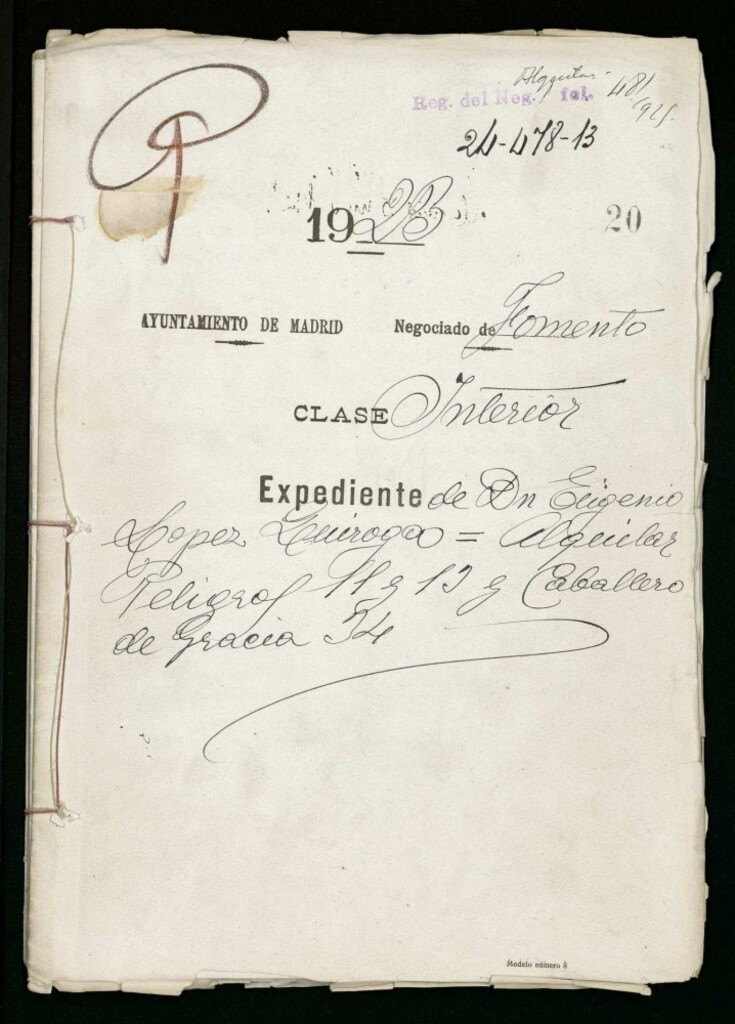 Alquilar 481
Reg. del Neg. fol. 1925.
24-478-13
1923 20
AYUNTAMIENTO DE MADRID Negociado de Fomento
CLASE Interior
Expediente de Dn Eugenio
Lopez Quiroga = Alquilar
Peligros 11 y 13 y Caballero
de Gracia 54
Modelo número 8